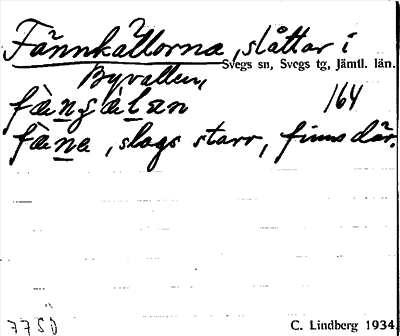 Fännkällorna, slåttar i
Svegs sn, Svegs tg, Jämtl. län.
Byvallen,
164
fäna, slags starr, finns där.
77SÖ
C. Lindberg 1934